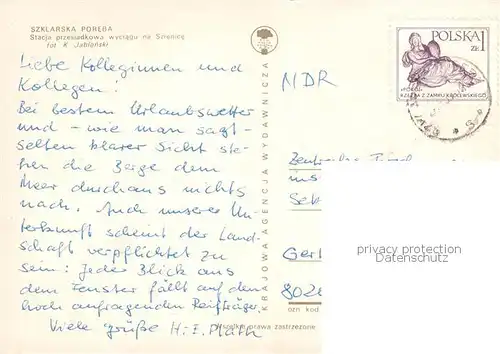 SZKLARSKA PORĘBA
Stacja przesiadkowa wyciągu na Szrenicę
fot. K. Jabłoński
Liebe Kolleginnen und
Kollegen!
Bei bestem Urlaubswetter
und – wie man sagt –
selten klarer Sicht ste-
hen die Berge dem
Meer durchaus nichts
nach. Auch unserer Un-
terkunft scheint der Land-
schaft verpflichtet zu
sein: Jeder Blick aus
dem Fenster fällt auf den
hoch aufragenden Reifträger.
Viele Grüße H.-E. Plath
KRAJOWA AGENCJA WYDAWNICZA
POLSKA
ZŁ 1
«POKÓJ»
RZEŹBA Z ZAMKU KRÓLEWSKIEGO
NDR
Zentrales
ins
Sek
Gerl
802
ozn kod
Wszelkie prawa zastrzeżone
privacy protection
Datenschutz